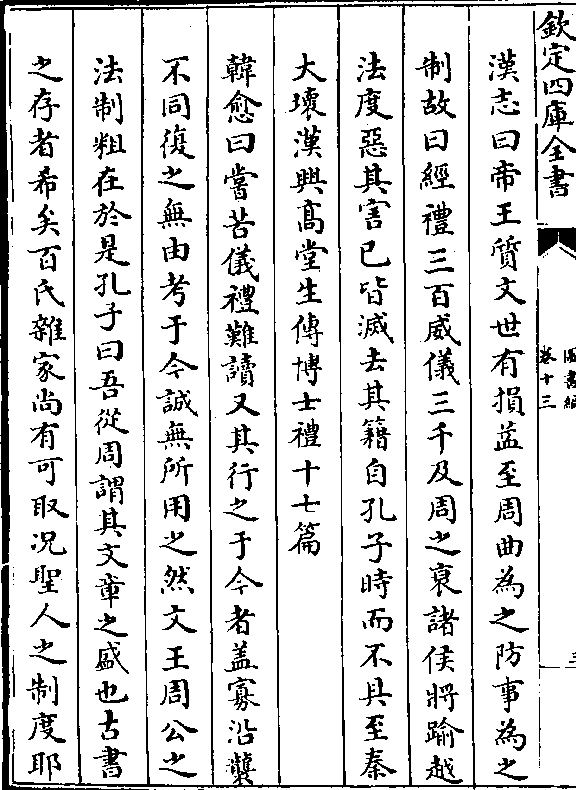 欽定四庫全書
圖書編
卷十三
漢志曰帝王質文世有損益至周曲為之防事為之
制故曰經禮三百威儀三千及周之衰諸侯將踰越
法度惡其害已皆滅去其籍自孔子時而不具至秦
大壞漢興髙堂生傳博士禮十七篇
韓愈曰嘗苦儀禮難讀又其行之于今者盖寡沿襲
不同復之無由考于今誠無所用之然文王周公之
法制粗在於是孔子曰吾從周謂其文章之盛也古書
之存者希矣百氏雜家尚有可取况聖人之制度耶